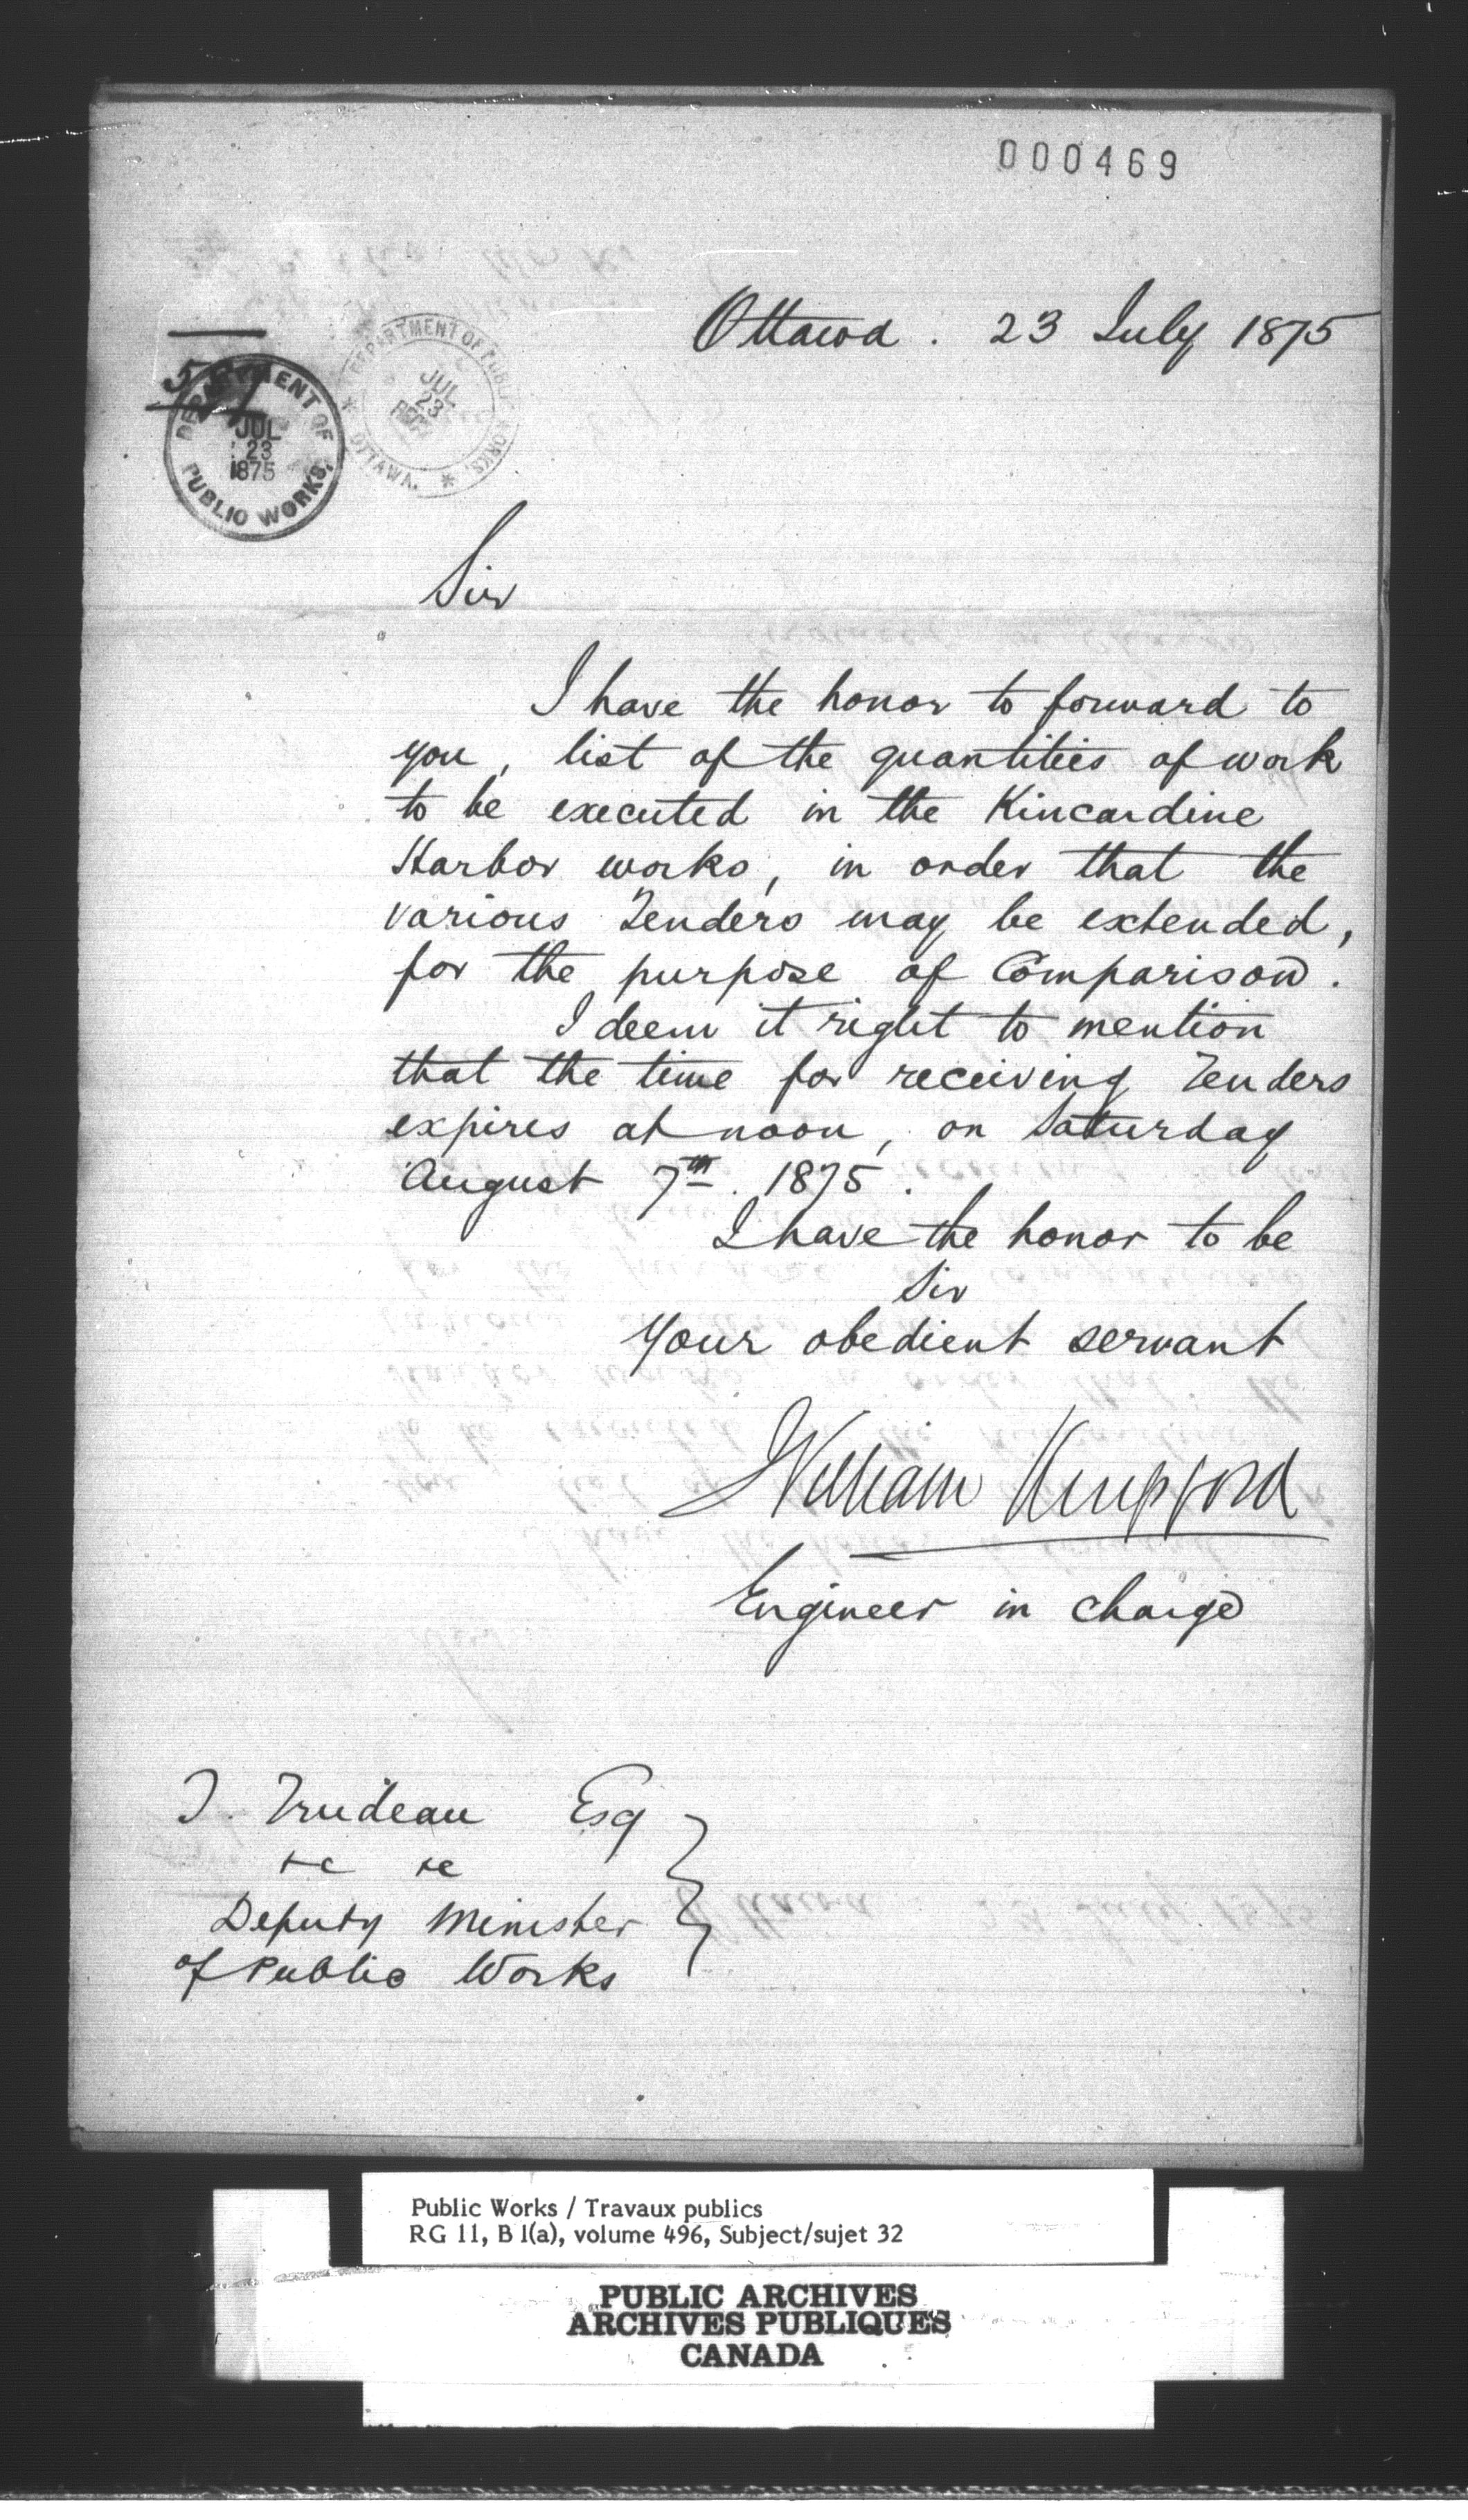 000469
Ottawa. 23 July 1875
DEPARTMENT OF PUBLIC WORKS,
JUL
23
1875
DEPARTMENT OF PUBLIC WORKS,
* OTTAWA. *
JUL
23
Sir
I have the honor to forward to
you, list of the quantities of work
to be executed in the Kincardine
Harbor works, in order that the
various Tenders may be extended,
for the purpose of Comparison.
I deem it right to mention
that the time for receiving Tenders
expires at noon, on Saturday
August 7th. 1875.
I have the honor to be
Sir
Your obedient servant
William Kingsford
Engineer in charge
T. Trudeau Esq
&c &c
Deputy Minister
of Public Works
Public Works / Travaux publics
RG 11, B 1(a), volume 496, Subject/sujet 32
PUBLIC ARCHIVES
ARCHIVES PUBLIQUES
CANADA